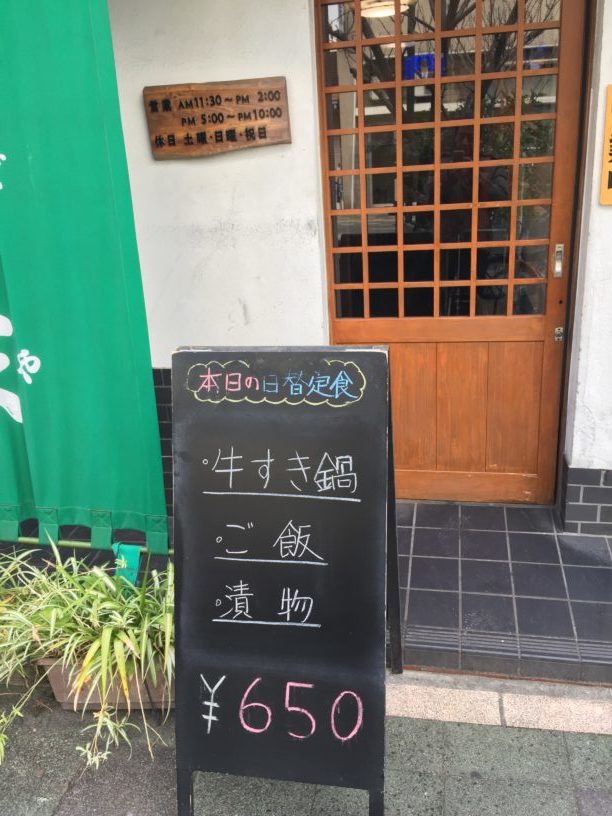 営業 AM11:30～PM 2:00
PM 5:00～PM10:00
休日 土曜・日曜・祝日
や
本日の日替定食
・牛すき鍋
・ご飯
・漬物
¥650